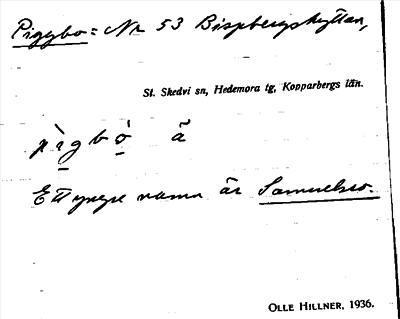 Piggbo: Nr 53 Bispbergshyttan,
St. Skedvi sn, Hedemora tg, Kopparbergs län.
pìgbò̱ ã
Ett yngre namn är Samuelsbo.
OLLE HILLNER, 1936.